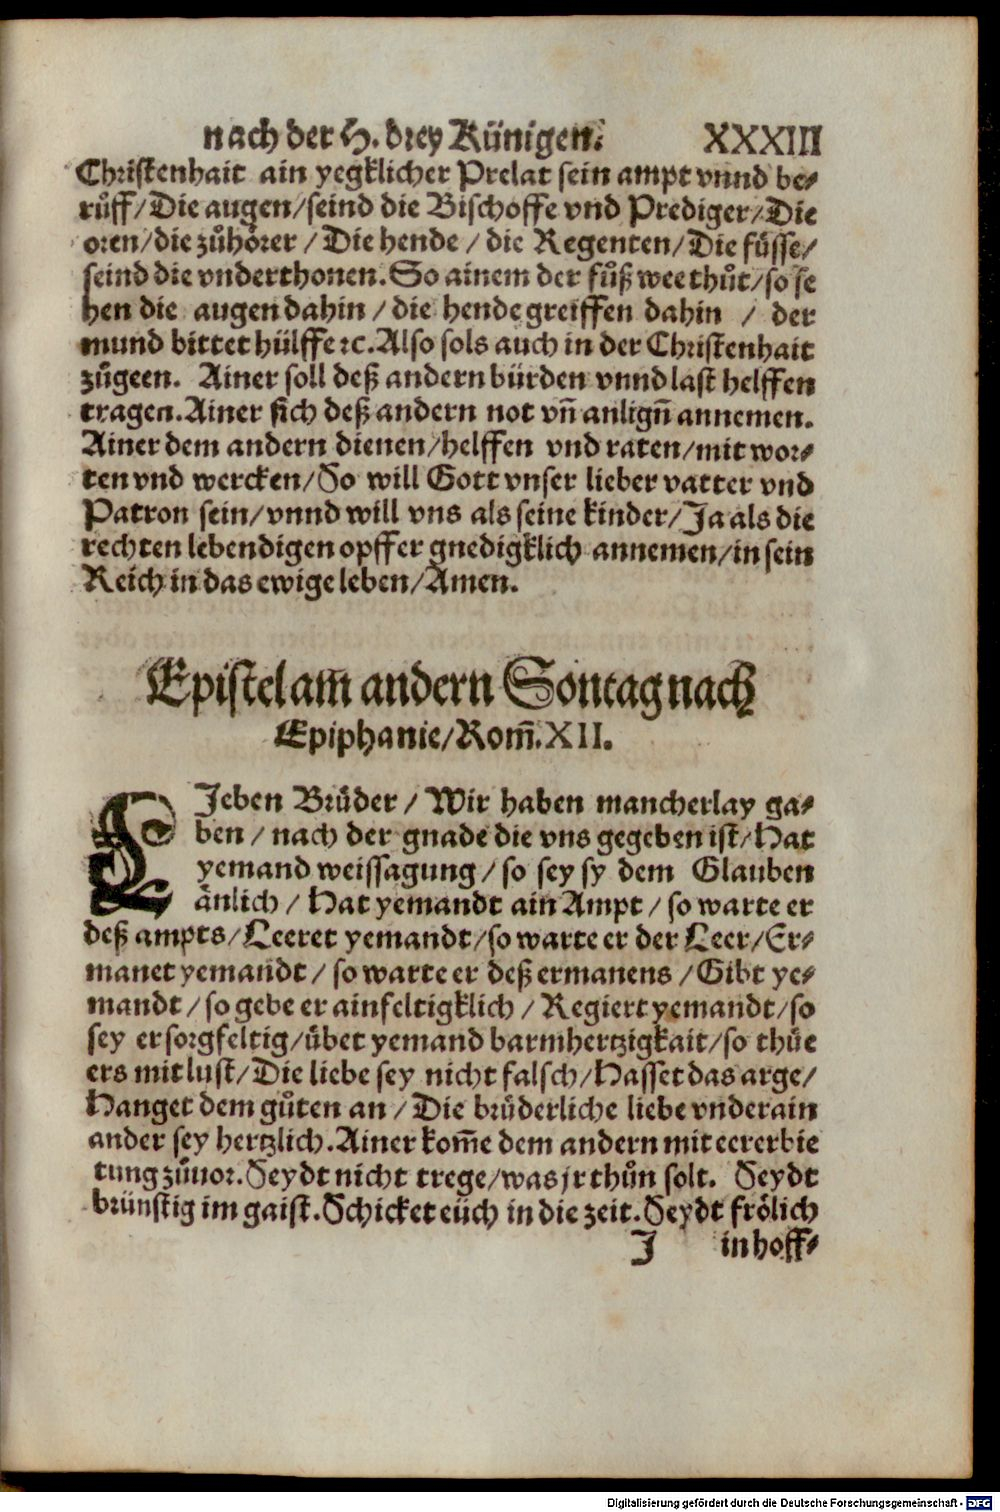 nach der H. drey Künigen. XXXIII
Christenhait ain yegklicher Prelat sein ampt vnnd be-
růff/Die augen/seind die Bischoffe vnd Prediger/Die
oren/die zůhörer/Die hende/die Regenten/Die füsse/
seind die vnderthonen. So ainem der fůß wee thůt/so se
hen die augen dahin/die hende greiffen dahin/der
mund bittet hülffe ꝛc. Also sols auch in der Christenhait
zůgeen. Ainer soll deß andern bürden vnnd last helffen
tragen. Ainer sich deß andern not vñ anlignñ annemen.
Ainer dem andern dienen/helffen vnd raten/mit wor-
ten vnd wercken/So will Gott vnser lieber vatter vnd
Patron sein/vnnd will vns als seine kinder/Ja als die
rechten lebendigen opffer gnedigklich annemen/in sein
Reich in das ewige leben/Amen.
Epistel am̃ andern Sontag nach
Epiphanie/Rom̃. XII.
LJeben Brüder/Wir haben mancherlay ga-
ben/nach der gnade die vns gegeben ist/Hat
yemand weissagung/so sey sy dem Glauben
änlich/Hat yemandt ain Ampt/so warte er
deß ampts/Leeret yemandt/so warte er der Leer/Er-
manet yemandt/so warte er deß ermanens/Gibt ye-
mandt/so gebe er ainfeltigklich/Regiert yemandt/so
sey er sorgfeltig/übet yemand barmhertzigkait/so thüe
ers mit lust/Die liebe sey nicht falsch/Hasset das arge/
Hanget dem gůten an/Die brüderliche liebe vnderain
ander sey hertzlich. Ainer kom̃e dem andern mit eererbie
tung zůuor. Seydt nicht trege/was jr thůn solt. Seydt
brünstig im gaist. Schicket eüch in die zeit. Seydt frölich
J in hoff-
Digitalisierung gefördert durch die Deutsche Forschungsgemeinschaft - DFG